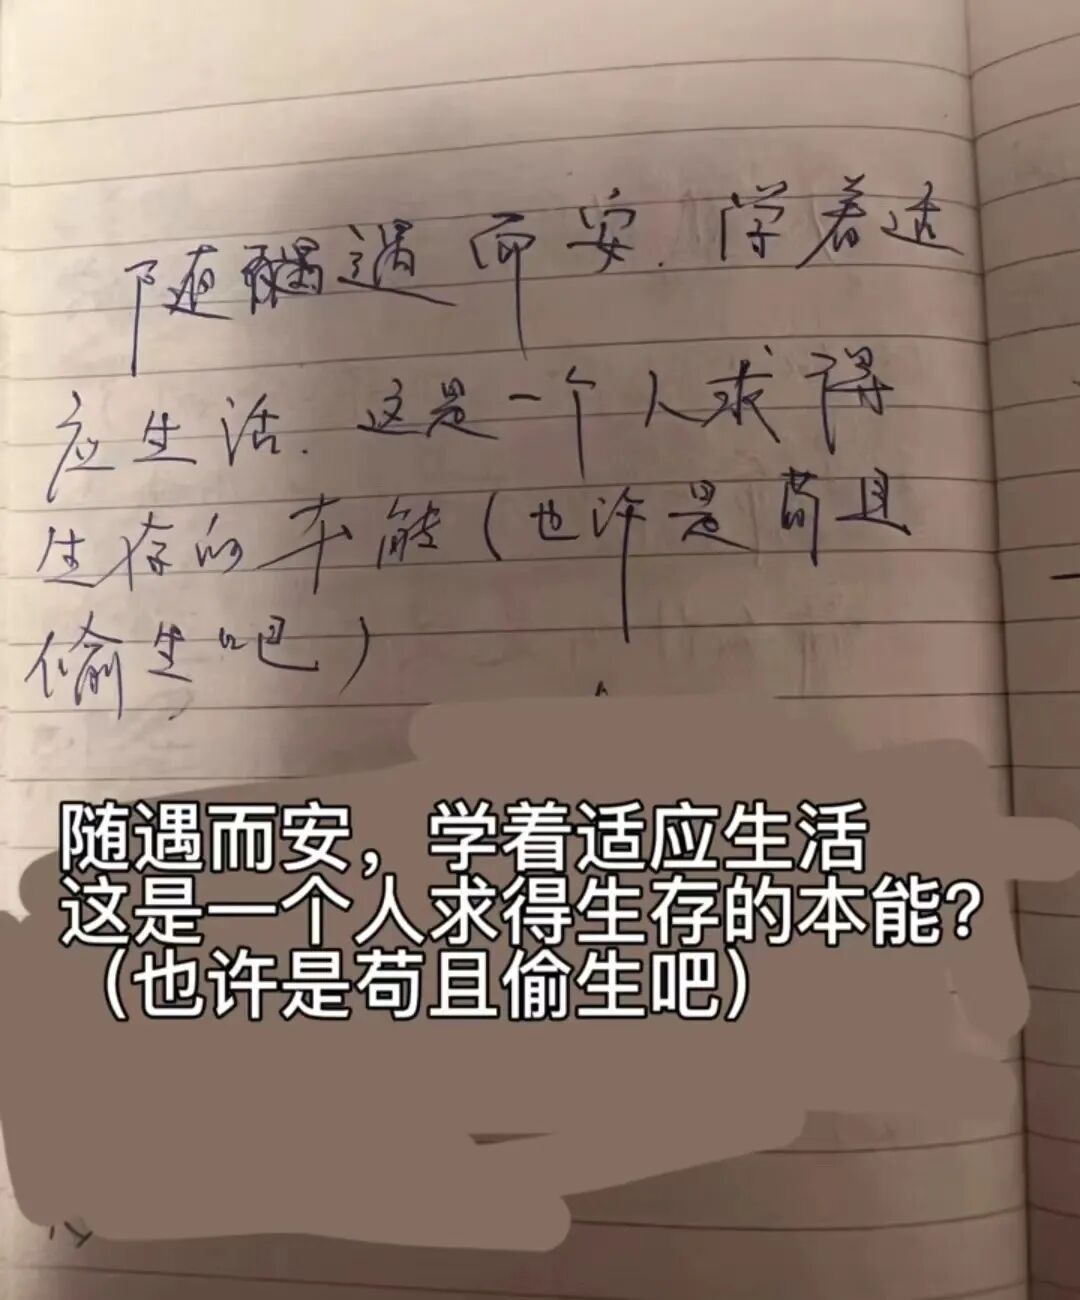 随遇而安.学着适
应生活.这是一个人求得
生存的本能(也许是苟且
偷生吧)
随遇而安，学着适应生活
这是一个人求得生存的本能？
（也许是苟且偷生吧）